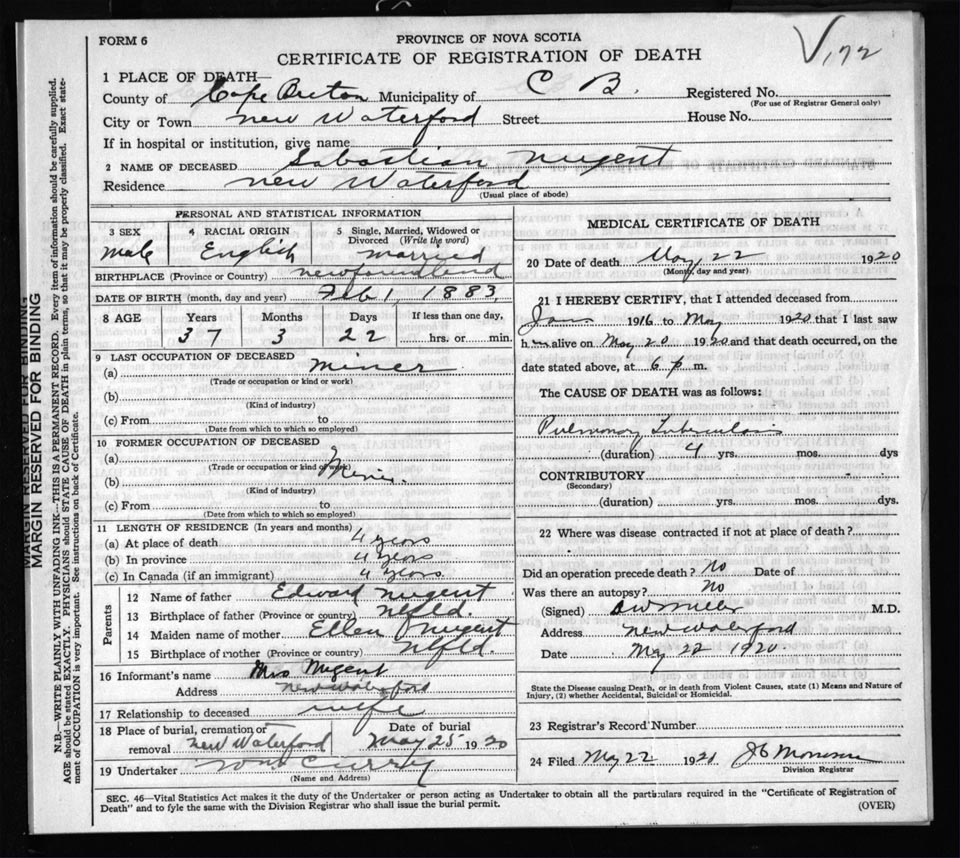 V, 172
FORM 6
PROVINCE OF NOVA SCOTIA
CERTIFICATE OF REGISTRATION OF DEATH
1 PLACE OF DEATH—
County of Cape Breton Municipality of C B. Registered No.
(For use of Registrar General only)
City or Town New Waterford Street House No.
If in hospital or institution, give name
2 NAME OF DECEASED Sabastian Nugent
Residence New Waterford
(Usual place of abode)
PERSONAL AND STATISTICAL INFORMATION
3 SEX 4 RACIAL ORIGIN 5 Single, Married, Widowed or Divorced (Write the word)
Male English Married
BIRTHPLACE (Province or Country) Newfoundland
DATE OF BIRTH (month, day and year) Feb 1, 1883,
8 AGE Years Months Days If less than one day,
37 3 22 hrs. or min.
9 LAST OCCUPATION OF DECEASED
(a) Miner
(Trade or occupation or kind or work)
(b)
(Kind of industry)
(c) From to
(Date from which to which so employed)
10 FORMER OCCUPATION OF DECEASED
(a)
(Trade or occupation or kind of work)
(b) Miner
(Kind of industry)
(c) From to
(Date from which to which so employed)
11 LENGTH OF RESIDENCE (In years and months)
(a) At place of death 4 years
(b) In province 4 years
(c) In Canada (if an immigrant) 4 years
Parents
12 Name of father Edward Nugent
13 Birthplace of father (Province or country) Nfld.
14 Maiden name of mother Ellen Nugent
15 Birthplace of mother (Province or Country) Nfld.
16 Informant's name Mrs Nugent
Address New Waterford
17 Relationship to deceased wife
18 Place of burial, cremation or removal New Waterford Date of burial May 25 1920
19 Undertaker Wm Curry
(Name and Address)
MEDICAL CERTIFICATE OF DEATH
20 Date of death May 22 1920
(Month, day and year)
21 I HEREBY CERTIFY, that I attended deceased from
Jany 1916 to May 1920 that I last saw
him alive on May 20 1920 and that death occurred, on the
date stated above, at 6 p m.
The CAUSE OF DEATH was as follows:
Pulmonary Tuberculosis
(duration) 4 yrs. mos. dys
CONTRIBUTORY
(Secondary)
(duration) yrs. mos. dys.
22 Where was disease contracted if not at place of death?
Did an operation precede death? No Date of
Was there an autopsy? No
(Signed) M.D.
Address New Waterford
Date May 22 1920
State the Disease causing Death, or in death from Violent Causes, state (1) Means and Nature of
Injury, (2) whether Accidental, Suicidal or Homicidal.
23 Registrar's Record Number
24 Filed May 22 1920
Division Registrar
SEC. 46—Vital Statistics Act makes it the duty of the Undertaker or person acting as Undertaker to obtain all the particulars required in the "Certificate of Registration of
Death" and to fyle the same with the Division Registrar who shall issue the burial permit.
(OVER)
MARGIN RESERVED FOR BINDING
MARGIN RESERVED FOR BINDING
N.B.—WRITE PLAINLY WITH UNFADING INK—THIS IS A PERMANENT RECORD. Every item of information should be carefully supplied.
AGE should be stated EXACTLY. PHYSICIANS should STATE CAUSE OF DEATH in plain terms, so that it may be properly classified. Exact state-
ment of OCCUPATION is very important. See instructions on back of Certificate.